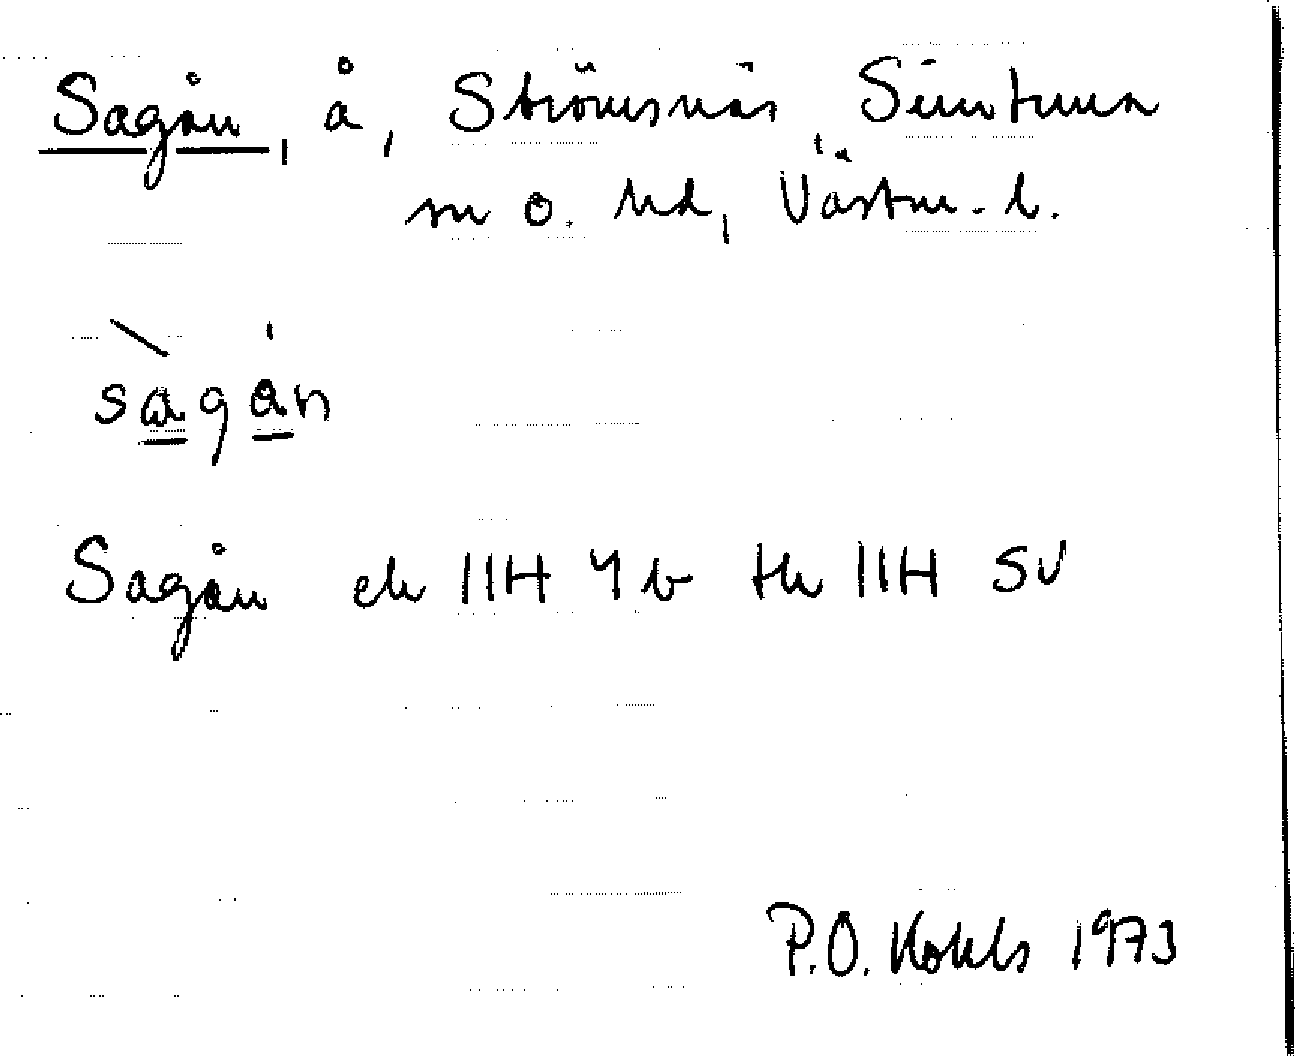 Sagån, å, Strömsnäs, Simtuna
sn o. hd, Västm. l.
sagån
Sagån ek 11H 4b tk 11H SV
P.O. Kohls 1973